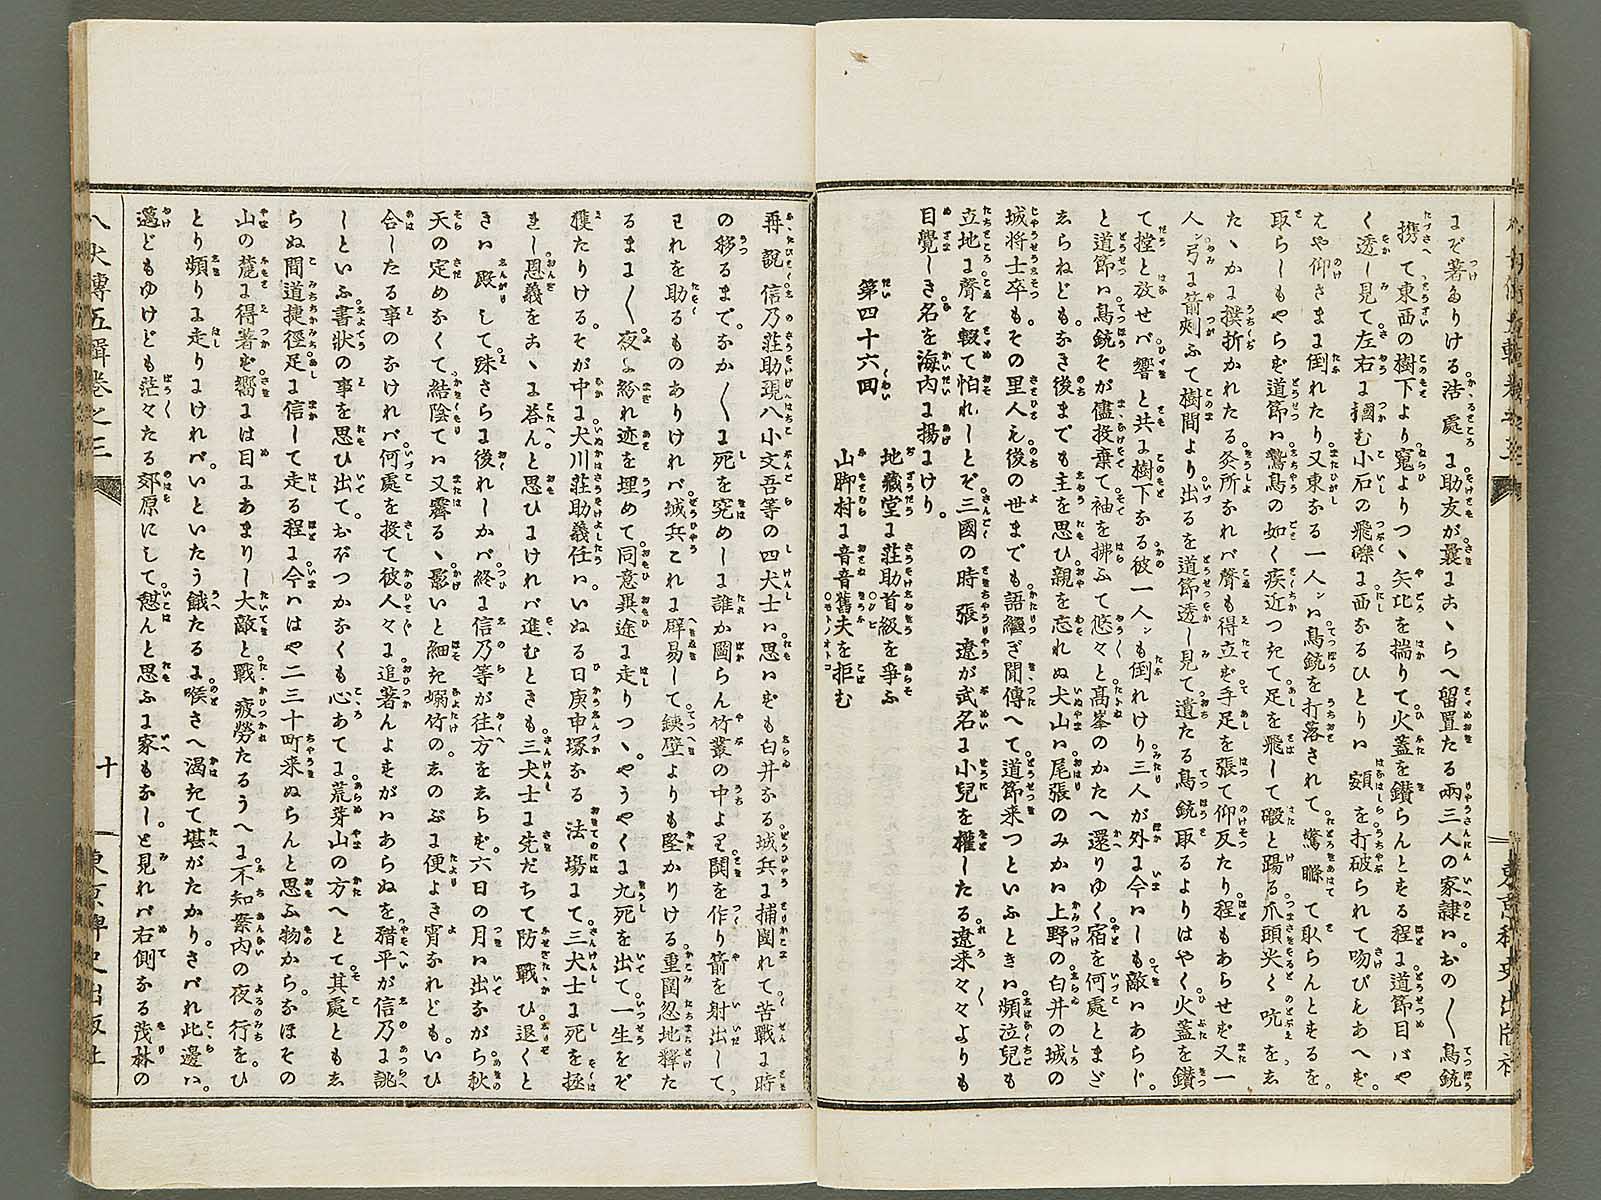 まで著ありける浩處に助友が曩にこゝらへ留置たる兩三人の家隷ハおの〳〵鳥銃
携て東西の樹下より窺よりつゝ矢比を揣りて火蓋を鑽らんとする程に道節目はや
く透し見て左右に摑む小石の飛礫に西なるひとりハ額を打破られて吻びもあへず
はや仰さまに倒れたり又東なる一人ハ鳥銃を打落されて驚て取らんとするを
取らしもやらず道節ハ鷙鳥の如く疾近つきて足を飛して礑と踢る爪頭尖く吭をゑ
たゝかに撲折かれたる灸所なれバ聲も得立ず手足を張て仰反たり程もあらせず又一
人ン弓に箭刾ふて樹間より出るを道節透し見て遺たる鳥銃取るよりはやく火蓋を鑽
て撲と放せバ響と共に樹下なる彼一人ンも倒れけり三人が外に今ハしも敵ハあらじ。
と道節ハ鳥銃そが儘投棄て袖を拂ふて悠々と高峯のかたへ還りゆく宿を何處とまざ
ゑらねどもなき後までも主を思ひ親を忘れぬ犬山ハ尾張のみかハ上野の白井の城の
城将士卒もその里人も後の世までも語繼ぎ聞傳へて道節来つといふときハ頻泣兒も
立地に聲を輟て怕れしとぞ三國の時張遼が武名に小兒を權したる遼来々々よりも
目覺しき名を海内に揚にけり。
第四十六回
地藏堂に荘助首級を爭ふ
山脚村に音音舊夫を拒む
再説信乃荘助現八小文吾等の四犬士ハ思ハずも白井なる城兵に捕圍れて苦戰に時
の移るまでなか〳〵に死を究めしに誰か圖らん竹叢の中より鬨を作り箭を射出して
われを助るものありけれバ城兵これに辟易して鐵壁よりも堅かりける重圍忽地釋た
るまに〳〵夜に紛れ迹を埋めて同意異途に走りつゝやうやくに九死を出て一生をぞ
獲たりけるそが中に犬川荘助義任ハいぬる日庚申塚なる法塲にて三犬士に死を拯
きし恩義をこゝに荅んと思ひにけれバ進むときも三犬士に先だちて防戰ひ退くと
きハ殿して殊さらに後れしかバ終に信乃等が往方をゑらず六日の月ハ出ながら秋
天の定めなくて結陰てハ又霽るゝ影いと細き嫋竹のゑのぶに便よき宵なれどもいひ
合したる事のなけれバ何處を投て彼人々に追著んよすがハあらぬを猪平が信乃に誂
しといふ書状の事を思ひ出ておぼつかなくも心あてに荒芽山の方へとて其處ともゑ
らぬ間道捷徑足に信して走る程に今ハはや二三十町来ぬらんと思ふ物からなほその
山の麓に得著ず嚮には目にあまりし大敵と戰疲勞たるうへに不知案内の夜行をひ
とり頻りに走りにけれバいといたう餓たるに喉さへ渇きて堪がたかりさバれ此邊ハ
邁どもゆけども茫々たる郊原にして憩んと思ふに家もなしと見れバ右側なる茂林の
八犬傳五輯巻之三
十
東京稗史出版社